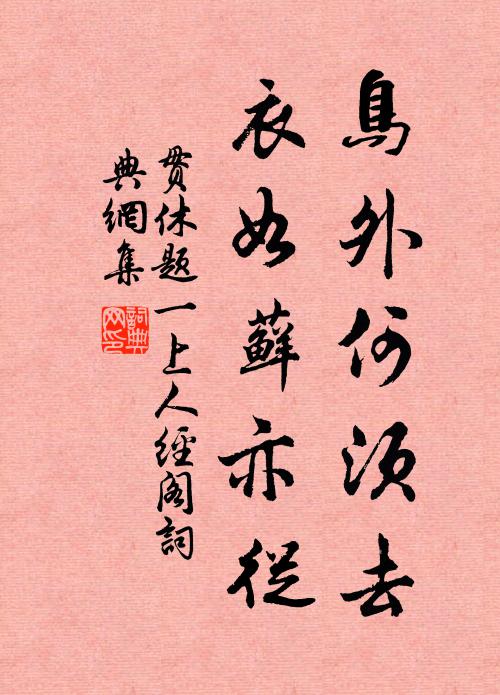 鳥外何須去
衣如蘚亦從
貫休題一上人經閣詞
典網集
詞典
网印